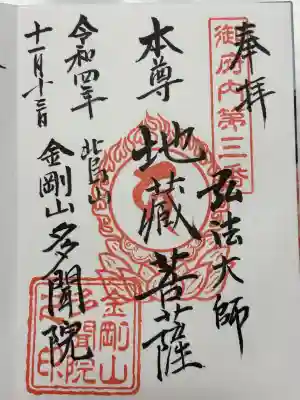 奉拝
御府内第三番
弘法大師
本尊
地藏菩薩
令和四年
十一月十三日
北烏山
金剛山多聞院
金剛山
多聞院
之印